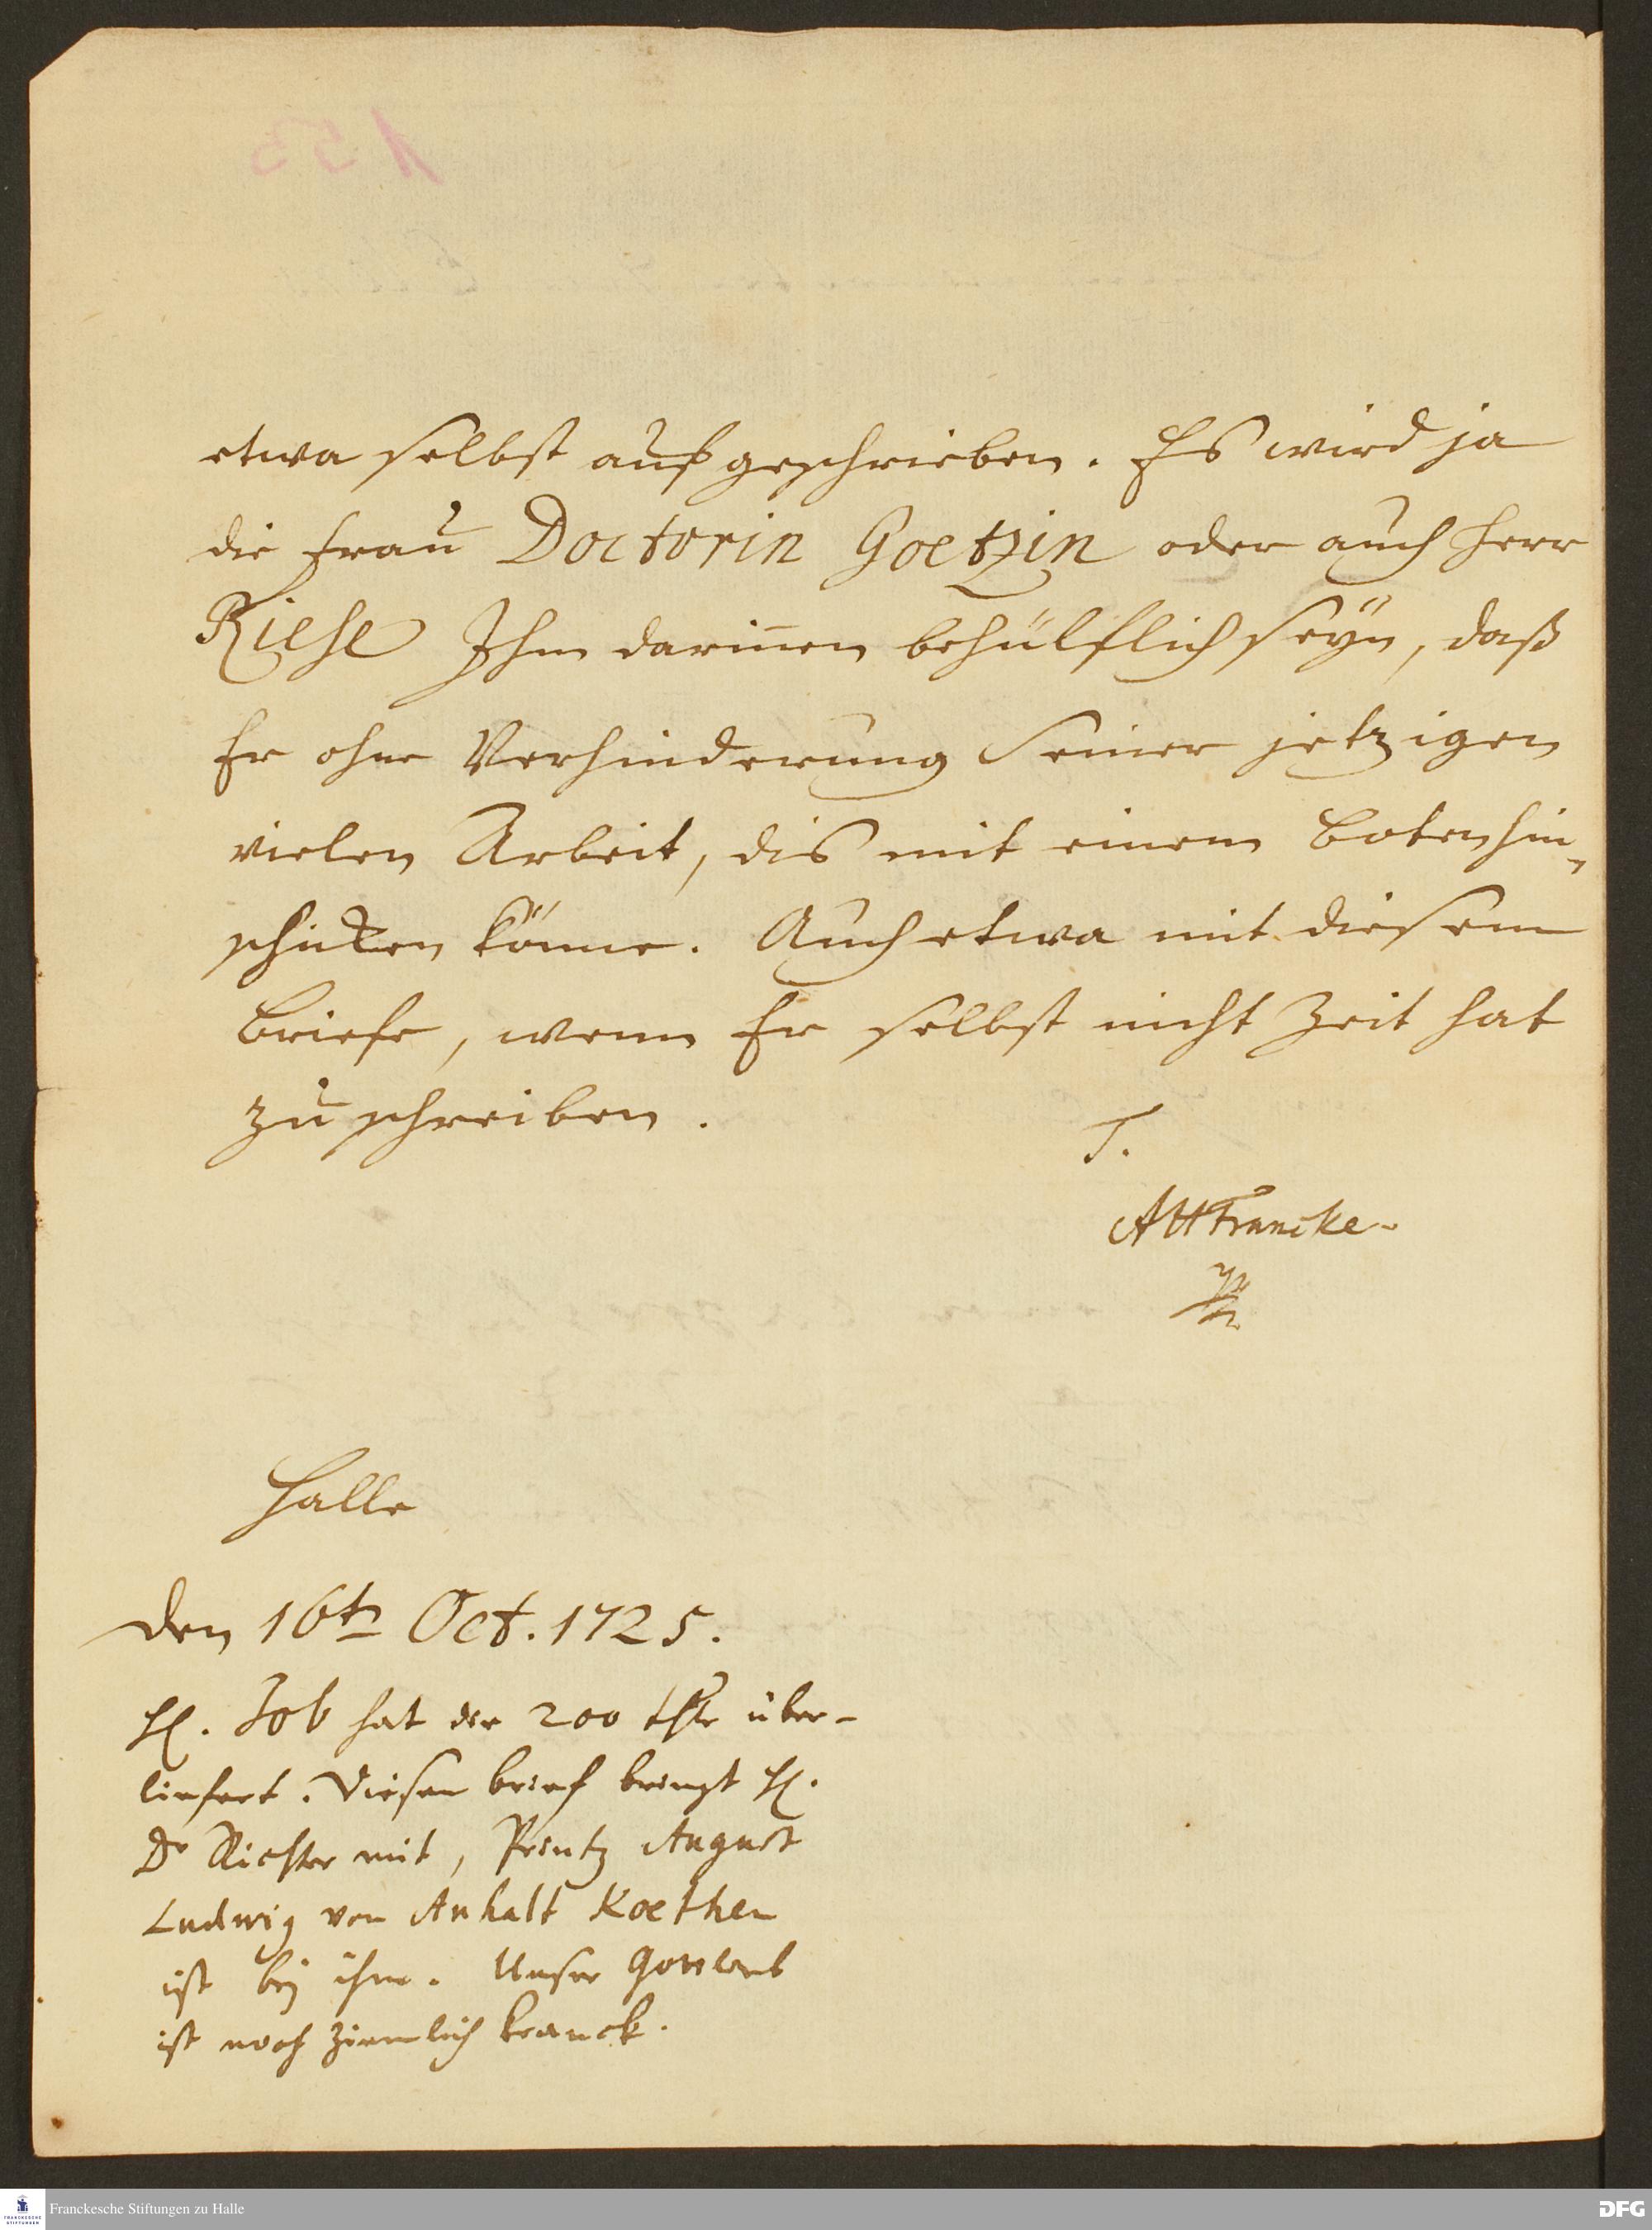 etwa selbst aufgeschrieben. Es wird ja
die Frau Doctorin Goetzin oder auch Herr
Riese Ihm darinnen behülflich seyn, daß
Er ohne Verhinderung Seiner jetzigen
vielen Arbeit, dis mit einem Boten hin„
schicken könne. Auch etwa mit diesem
Briefe, wenn Er selbst nicht Zeit hat
zu schreiben.
T.
AHFrancke
Halle
den 16ten Oct. 1725.
H. Job hat die 200 thlr über-
liefert. Diesen brief bringt H.
Dr Richter mit, Printz August
Ludwig von Anhalt Koethen
ist bey ihm. Unser Gottlieb
ist noch ziemlich kranck.
Franckesche Stiftungen zu Halle
FRANCKESCHE STIFTUNGEN
DFG